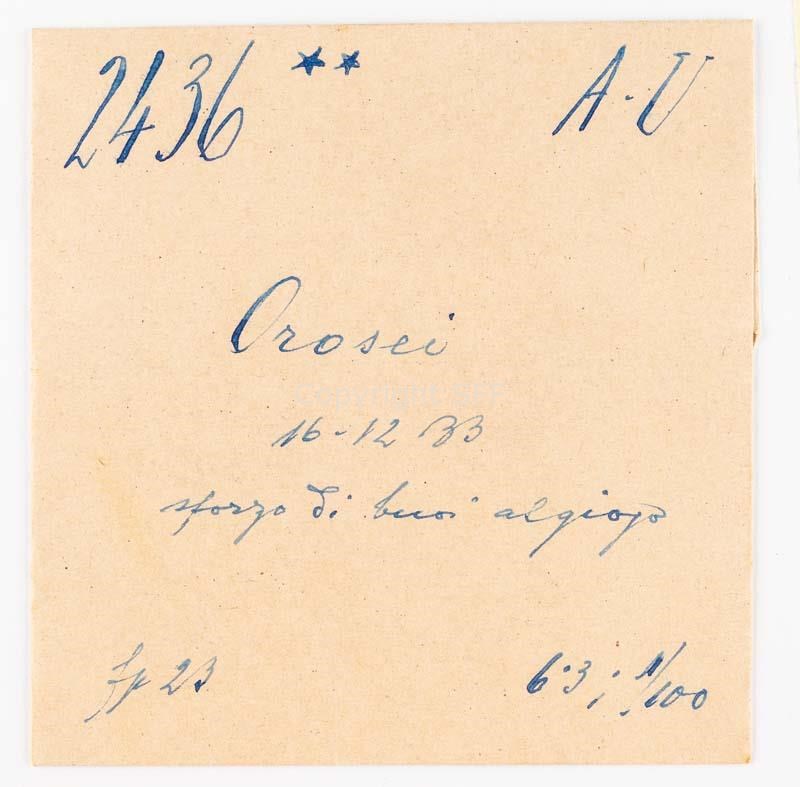 2436 ** A-U
Orosei
16-12 33
sforzo di buoi al giogo
fp 23
6.3; 1/100